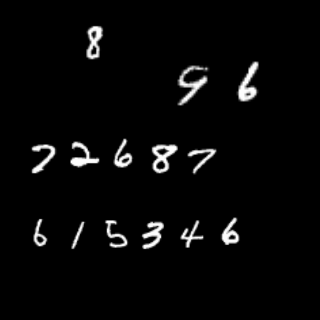 8
9 6
7 2 6 8 7
6 1 5 3 4 6